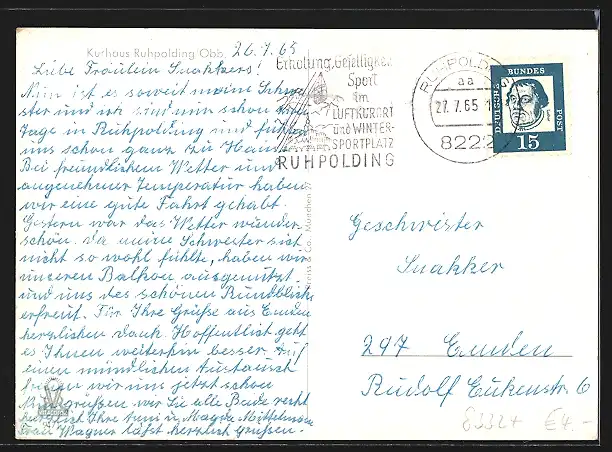 Kurhaus Ruhpolding Obb. 26.7.65
Liebe Fräulein Snakkers!
Nun ist es soweit meine Schwe-
ster und ich sind nun schon
Tage in Ruhpolding und fühlen
uns schon ganz zu Haus
Bei freundlichem Wetter und
angenehmer Temperatur haben
wir eine gute Fahrt gehabt.
Gestern war das Wetter wunder
schön. Da meine Schwester sich
nicht so wohl fühlte, haben wir
unseren Balkon ausgenützt
und uns des schönen Rundblicks
erfreut. Für Ihre Grüße aus Emden
herzlichen Dank. Hoffentlich geht
es Ihnen weiterhin besser. Auf
einen mündlichen Austausch
freuen wir uns jetzt schon
grüßen wir Sie alle Beide recht
herzlich Ihre Magda Mittelmann
Frau Wagner läßt herzlich grüßen.
Erholung, Geselligkeit
Sport
im
LUFTKURORT
und WINTER-
SPORTPLATZ
RUHPOLDING
RUHPOLDING
aa
27.7.65
8222
DEUTSCHE BUNDESPOST
15
Geschwister
Snakker
297 Emden
Rudolf Eukenstr. 6
83324 €4.-
& Co., München 27